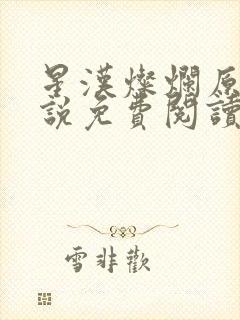 星漢燦爛原
說免費閱讀
雪非歡